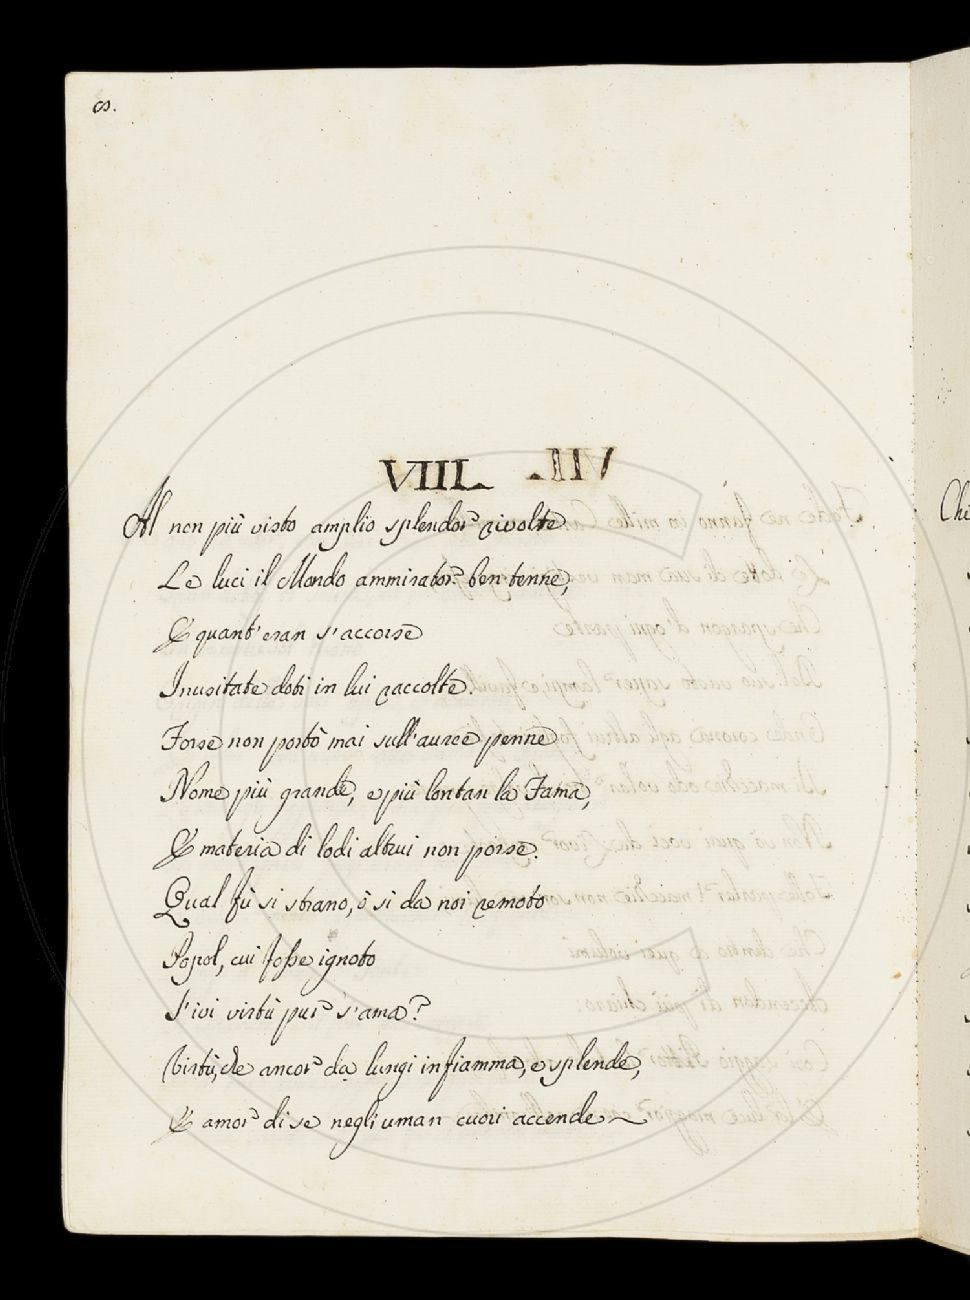 8.
VIII.
Al non più visto amplio splendor rivolte
Le luci il Mondo ammirator ben tenne,
E quant'eran s'accorse
Inusitate doti in lui raccolte.
Forse non portò mai sull'auree penne
Nome più grande, e più lontan la Fama,
E materia di lodi altrui non porse.
Qual fù sì strano, ò sì da noi remoto
Popol, cui fosse ignoto
S'ivi virtù pur s'ama?
Virtù, che ancor da lungi infiamma, e splende,
E amor di se negli uman cuori accende
Che